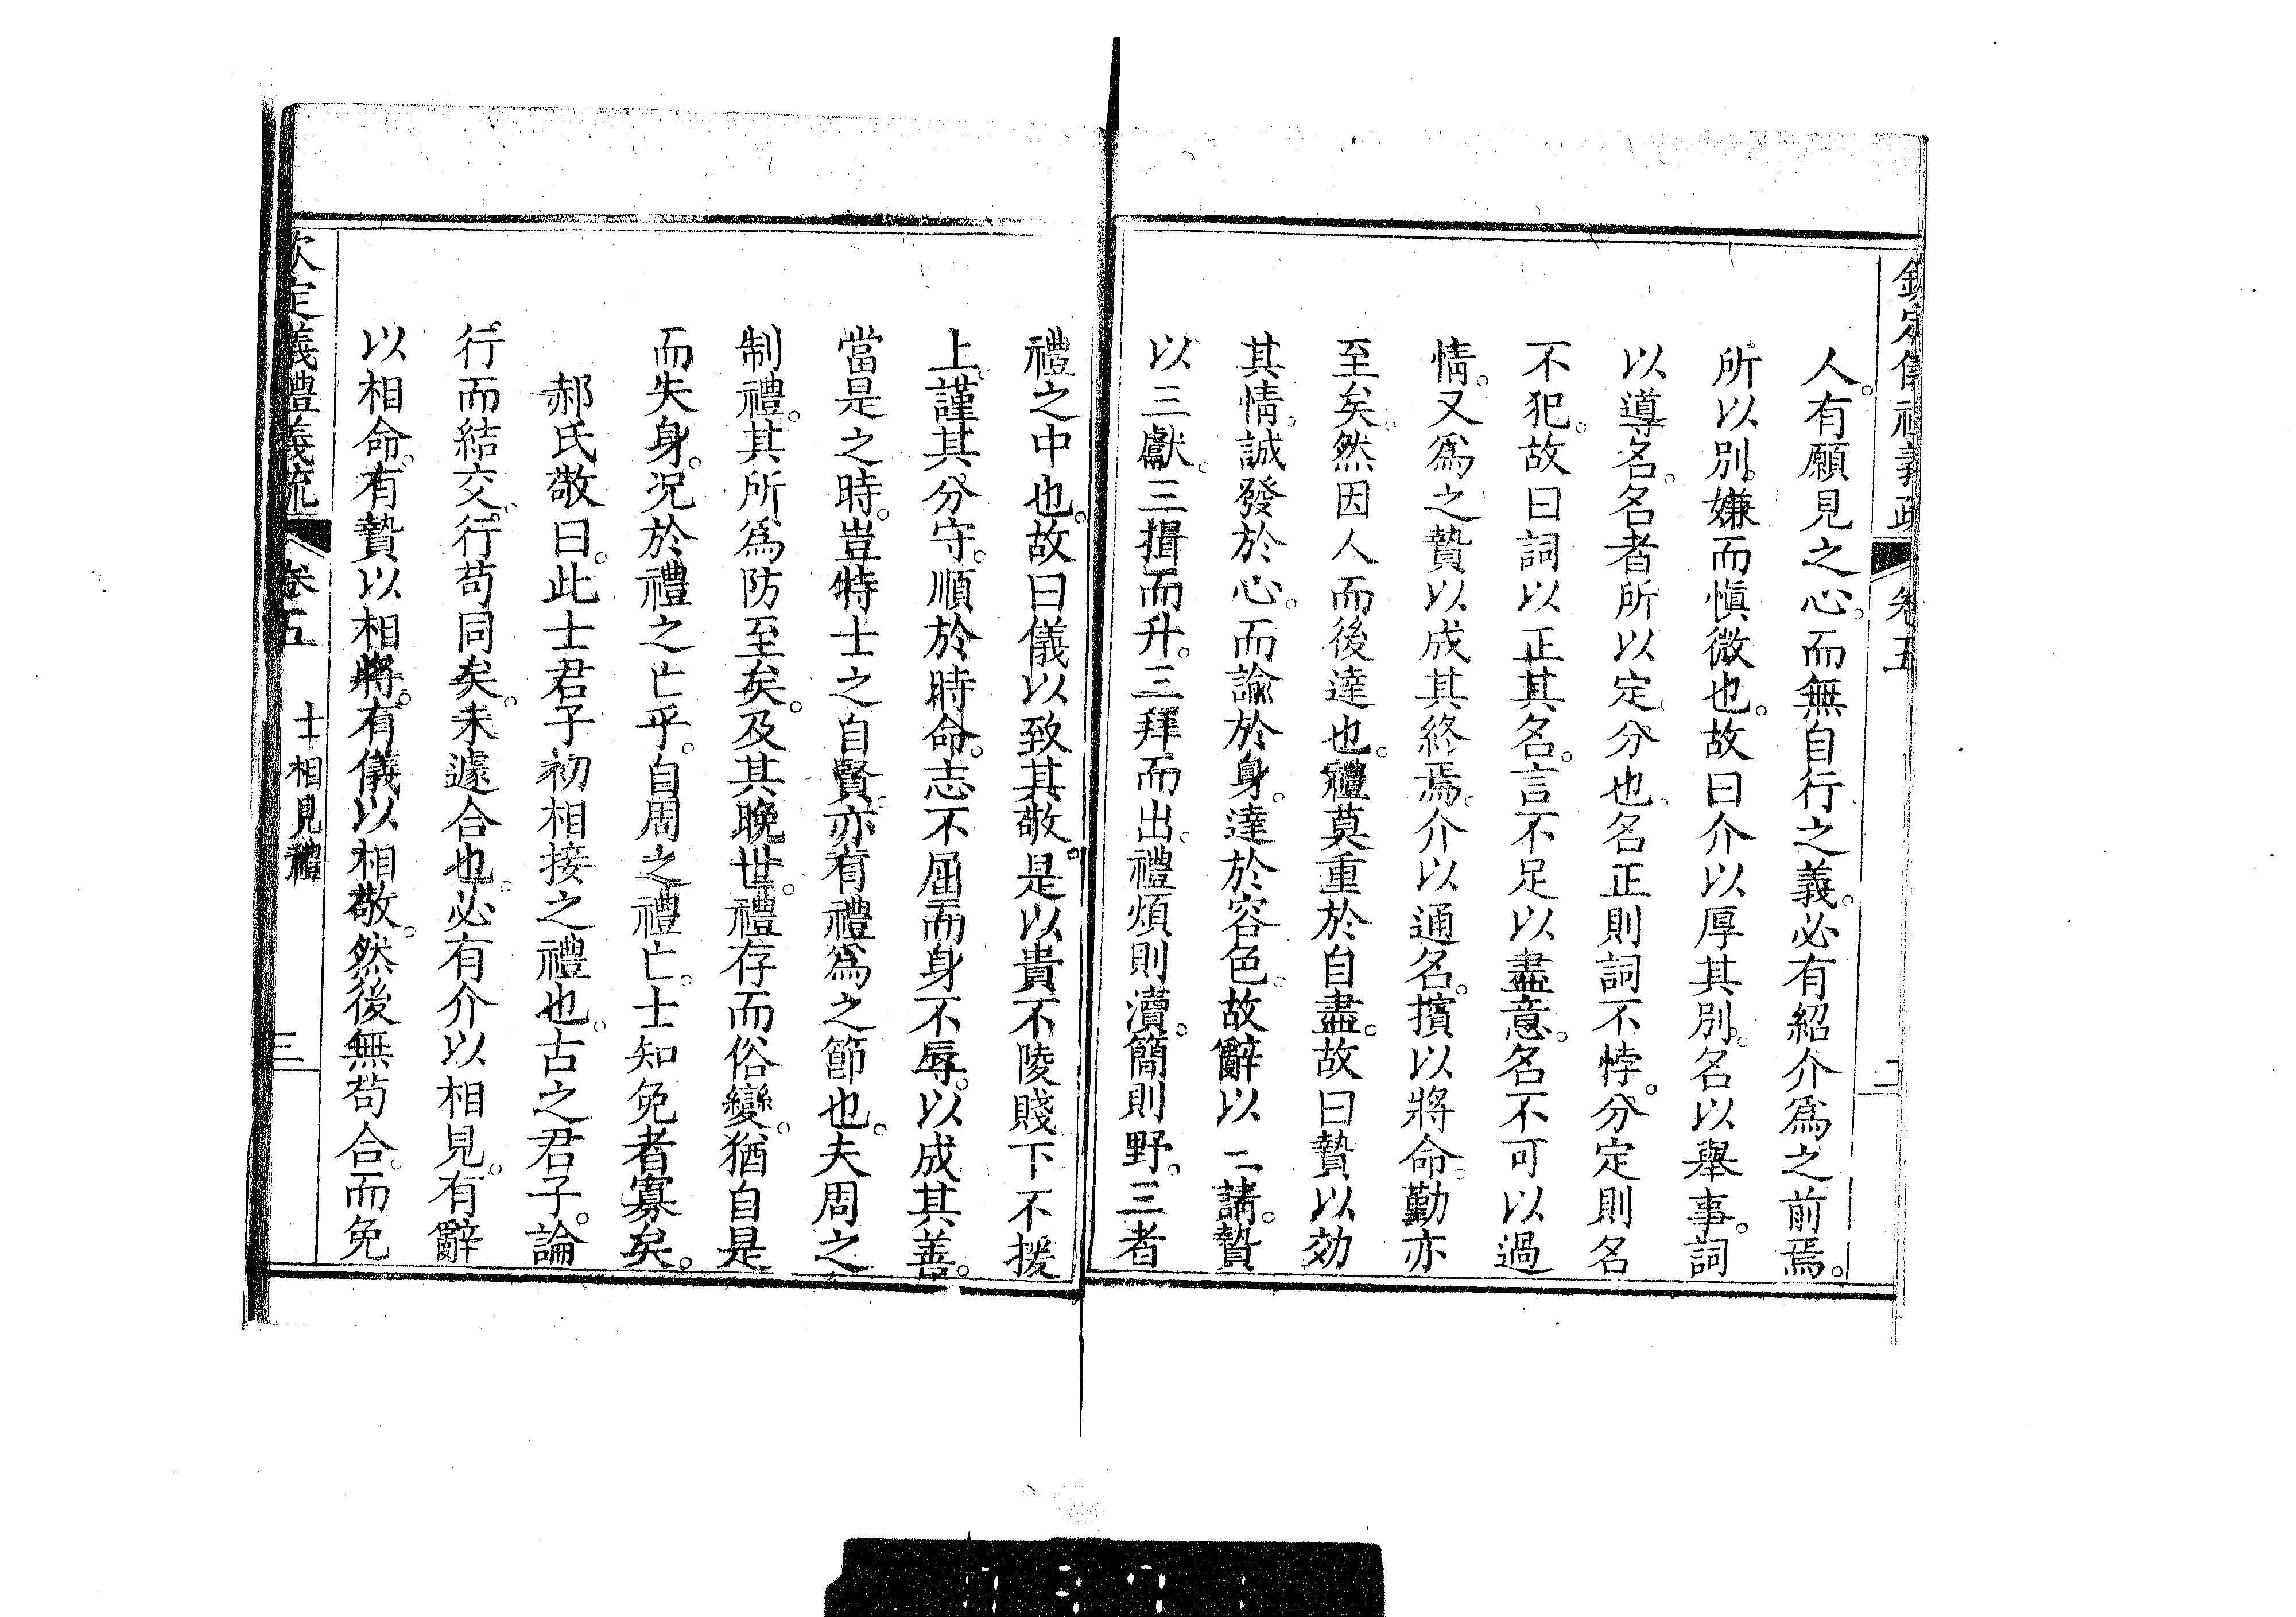 欽定儀禮義疏 卷五 二
人。有願見之心。而無自行之義。必有紹介爲之前焉。
所以別嫌而愼微也。故曰介以厚其別。名以舉事。詞
以導名。名者所以定分也。名正則詞不悖。分定則名
不犯。故曰詞以正其名。言不足以盡意。名不可以過
情。又爲之贄以成其終焉。介以通名。擯以將命。勤亦
至矣。然因人而後達也。禮莫重於自盡。故曰贄以効
其情。誠發於心。而諭於身。達於容色。故辭以二請。贄
以三獻。三揖而升。三拜而出。禮煩則瀆。簡則野。三者
禮之中也。故曰儀以致其敬。是以貴不陵賤下不援
上。謹其分守。順於時命。志不屈而身不辱。以成其善。
當是之時。豈特士之自賢。亦有禮爲之節也。夫周之
制禮。其所爲防至矣。及其晚世。禮存而俗變。猶自是
而失身。況於禮之亡乎。自周之禮亡。士知免者寡矣。
郝氏敬曰。此士君子初相接之禮也。古之君子。論
行而結交。行苟同矣。未遽合也。必有介以相見。有辭
以相命。有贄以相將。有儀以相敬。然後無苟合。而免
欽定儀禮義疏 卷五 士相見禮 三